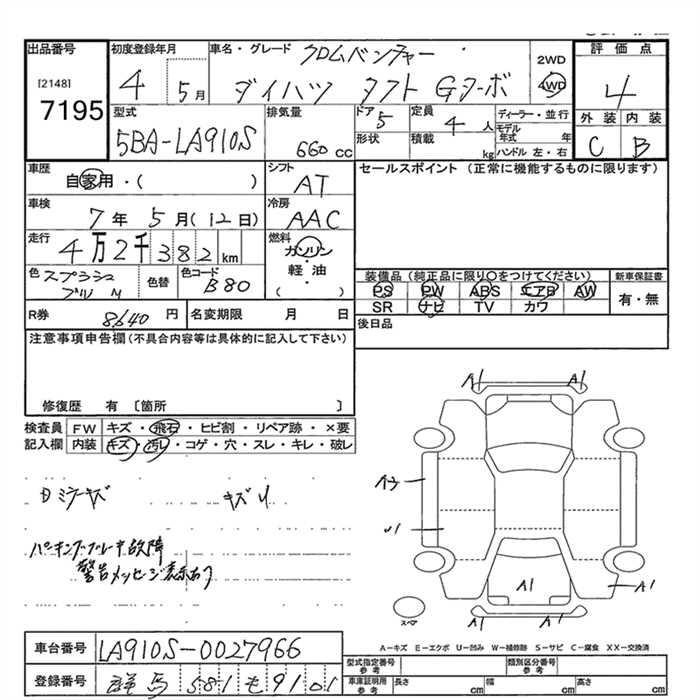 出品番号 初度登録年月 車名・グレード クロムベンチャー 2WD 評価点
[2148] 4 5月 ダイハツ タフト Gターボ 4WD 4
7195 型式 排気量 ドア 5 定員 4人 ディーラー・並行 外装 内装
5BA-LA910S 660cc 形状 積載 kg モデル年式 年 C B
ハンドル 左・右
車歴 自家用・( ) シフト AT セールスポイント (正常に機能するものに限ります)
車検 7年 5月(12日) 冷房 AAC
走行 4万2千382km 燃料 ガソリン・軽油・( )
色 スプラッシュ 色替 色コード B80 装備品(純正品に限り○をつけてください) 新車保証書
PS PW ABS エアB AW 有・無
SR ナビ TV カワ
R券 8640円 名変期限 月 日 後日品
注意事項申告欄(不具合内容等は具体的に記入して下さい)
修復歴 有〔箇所 〕
検査員 FW キズ・飛石・ヒビ割・リペア跡・×要
記入欄 内装 キズ・汚レ・コゲ・穴・スレ・キレ・破レ
A1 A1
キズ
パーキングブレーキ故障
警告メッセージ表示あり
A1 A1
スペア
A-キズ E-エクボ U-凹み W-補修跡 S-サビ C-腐食 XX-交換済
車台番号 LA910S-0027966 型式指定番号 参考 類別区分番号 参考
登録番号 群馬 581 も 9101 車庫証明用 参考 長さ cm 幅 cm 高さ cm